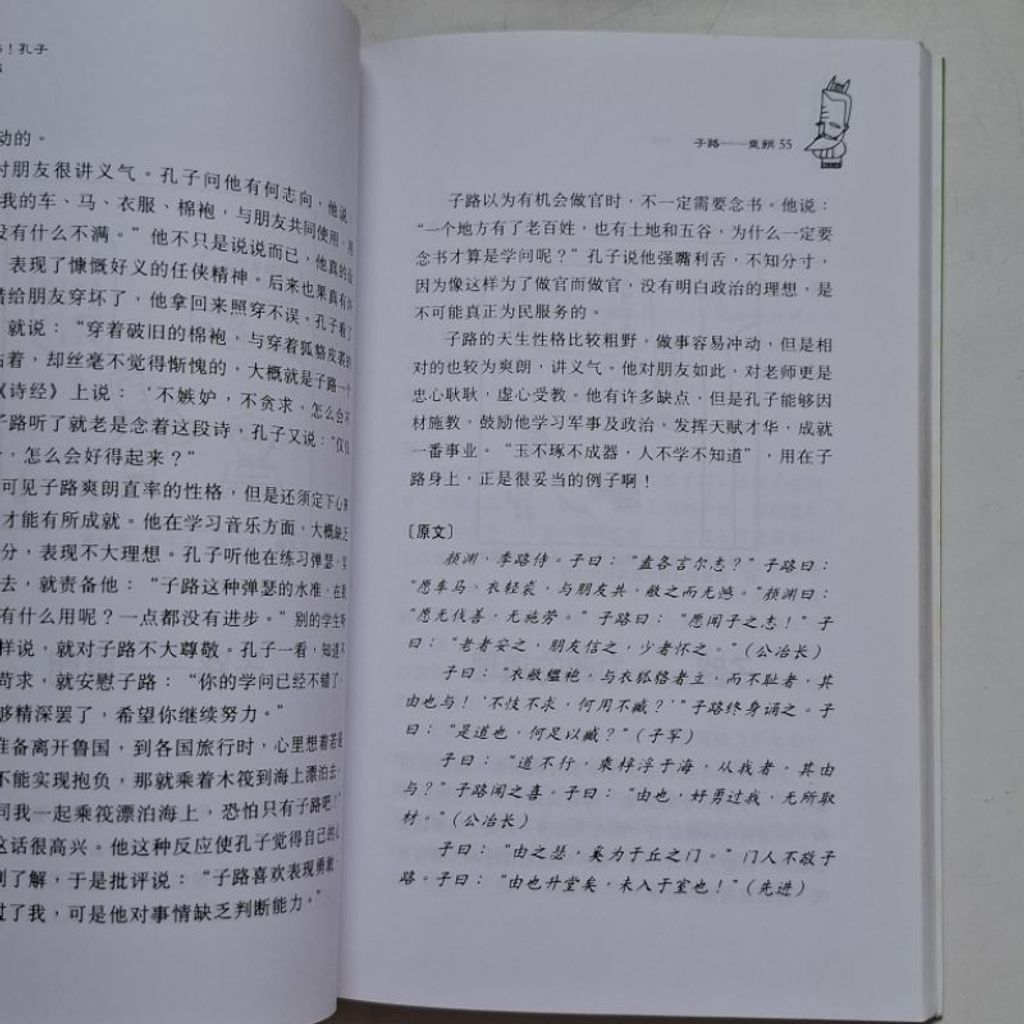 ！孔子
动的。
对朋友很讲义气。孔子问他有何志向，他说：
我的车、马、衣服、棉袍，与朋友共同使用，用
没有什么不满。”他不只是说说而已，他真的
，表现了慷慨好义的任侠精神。后来也果真有
借给朋友穿坏了，他拿回来照穿不误。孔子看了
，就说：“穿着破旧的棉袍，与穿着狐貉皮裘的
站着，却丝毫不觉得惭愧的，大概就是子路一个
《诗经》上说：‘不嫉妒，不贪求，怎么会不
子路听了就老是念着这段诗，孔子又说：“仅仅
，怎么会好得起来？”
可见子路爽朗直率的性格，但是还须定下心来
才能有所成就。他在学习音乐方面，大概缺乏
分，表现不大理想。孔子听他在练习弹瑟，
去，就责备他：“子路这种弹瑟的水准，在我
有什么用呢？一点都没有进步。”别的学生听
样说，就对子路不大尊敬。孔子一看，知道不
苛求，就安慰子路：“你的学问已经不错了，
够精深罢了，希望你继续努力。”
准备离开鲁国，到各国旅行时，心里想着若是
不能实现抱负，那就乘着木筏到海上漂泊去，
同我一起乘筏漂泊海上，恐怕只有子路吧！”
这话很高兴。他这种反应使孔子觉得自己的心
到了解，于是批评说：“子路喜欢表现勇敢，
过了我，可是他对事情缺乏判断能力。”
子路——爽朗 55
子路以为有机会做官时，不一定需要念书。他说：
“一个地方有了老百姓，也有土地和五谷，为什么一定要
念书才算是学问呢？”孔子说他强嘴利舌，不知分寸，
因为像这样为了做官而做官，没有明白政治的理想，是
不可能真正为民服务的。
子路的天生性格比较粗野，做事容易冲动，但是相
对的也较为爽朗，讲义气。他对朋友如此，对老师更是
忠心耿耿，虚心受教。他有许多缺点，但是孔子能够因
材施教，鼓励他学习军事及政治，发挥天赋才华，成就
一番事业。“玉不琢不成器，人不学不知道”，用在子
路身上，正是很妥当的例子啊！
〔原文〕
颜渊、季路侍。子曰：“盍各言尔志？”子路曰：
“愿车马、衣轻裘，与朋友共，敝之而无憾。”颜渊曰：
“愿无伐善，无施劳。”子路曰：“愿闻子之志！”子
曰：“老者安之，朋友信之，少者怀之。”（公冶长）
子曰：“衣敝缊袍，与衣狐貉者立，而不耻者，其
由也与！‘不忮不求，何用不臧？’”子路终身诵之。子
曰：“是道也，何足以臧？”（子罕）
子曰：“道不行，乘桴浮于海，从我者，其由
与？”子路闻之喜。子曰：“由也，好勇过我，无所取
材。”（公冶长）
子曰：“由之瑟，奚为于丘之门。”门人不敬子
路。子曰：“由也升堂矣，未入于室也！”（先进）